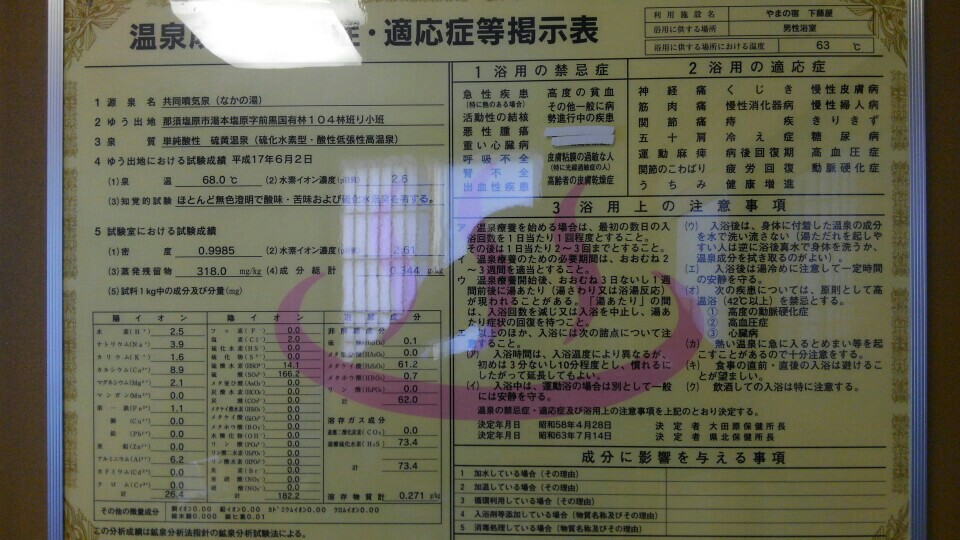 温泉
・適応症等掲示表
利用施設名 やまの宿 下藤屋
浴用に供する場所 男性浴室
浴用に供する場所における温度 63 ℃
1 源泉名 共同噴気泉（なかの湯）
2 ゆう出地 那須塩原市湯本塩原字前黒国有林１０４林班り小班
3 泉質 単純酸性 硫黄温泉（硫化水素型・酸性低張性高温泉）
4 ゆう出地における試験成績 平成17年6月2日
(1)泉温 68.0 ℃ (2)水素イオン濃度 2.6
(3)知覚的試験 ほとんど無色澄明で酸味・苦味および を有する。
5 試験室における試験成績
(1)密度 0.9985 (2)水素イオン濃度 2.61
(3)蒸発残留物 318.0 mg/kg (4)成分総計 0.344 g/kg
(5)試料1kg中の成分及び分量(mg)
陽イオン
水素(H⁺) 2.5
ナトリウム(Na⁺) 3.9
カリウム(K⁺) 1.6
カルシウム(Ca²⁺) 8.9
マグネシウム(Mg²⁺) 2.1
マンガン(Mn²⁺) 0.0
第一鉄(Fe²⁺) 1.1
銅(Cu²⁺) 0.0
鉛(Pb²⁺) 0.0
亜鉛(Zn²⁺) 0.0
アルミニウム(Al³⁺) 6.2
カドミウム(Cd²⁺) 0.0
クロム(Cr³⁺) 0.0
計 26.4
陰イオン
フッ素(F⁻) 0.0
塩素(Cl⁻) 2.0
硫化水素(HS⁻) 0.0
硫化物(S²⁻) 0.0
硫酸水素(HSO₄⁻) 14.1
硫酸(SO₄²⁻) 166.2
計 182.2
非解離成分
硫酸(H₂SO₄) 0.1
メタ亜ヒ酸(HAsO₂) 0.0
メタケイ酸(H₂SiO₃) 61.2
メタホウ酸(HBO₂) 0.7
リン酸(H₃PO₄) 0.0
計 62.0
溶存ガス成分
遊離二酸化炭素(CO₂) 0.0
遊離硫化水素(H₂S) 73.4
計 73.4
溶存物質計 0.271 g/kg
その他の微量成分
この分析成績は鉱泉分析法指針の鉱泉分析試験法による。
1 浴用の禁忌症
急性疾患
(特に熱のある場合)
活動性の結核
悪性腫瘍
重い心臓病
呼吸不全
腎不全
出血性疾患
高度の貧血
その他一般に病
勢進行中の疾患
皮膚粘膜の過敏な人
(特に光線過敏症の人)
高齢者の皮膚乾燥症
2 浴用の適応症
神経痛 くじき 慢性皮膚病
筋肉痛 慢性消化器病 慢性婦人病
関節痛 痔疾 きりきず
五十肩 冷え症 糖尿病
運動麻痺 病後回復期 高血圧症
関節のこわばり 疲労回復 動脈硬化症
うちみ 健康増進
3 浴用上の注意事項
ア 温泉療養を始める場合は、最初の数日の入
浴回数を1日当たり1回程度とすること。
その後は1日当たり2～3回までとすること。
イ 温泉療養のための必要期間は、おおむね2
～3週間を適当とすること。
ウ 温泉療養開始後、おおむね3日ないし1週
間前後に湯あたり（湯さわり又は浴湯反応）
が現われることがある。「湯あたり」の間
は、入浴回数を減じ又は入浴を中止し、湯あ
たり症状の回復を待つこと。
エ 以上のほか、入浴には次の諸点について注
意すること。
(ア) 入浴時間は、入浴温度により異なるが、
初めは3分ないし10分程度とし、慣れるに
したがって延長してもよい。
(イ) 入浴中は、運動浴の場合は別として一般
には安静を守る。
(ウ) 入浴後は、身体に付着した温泉の成分
を水で洗い流さない（湯ただれを起しやす
い人は逆に浴後真水で身体を洗うか、
温泉成分を拭き取るのがよい）。
(エ) 入浴後は湯冷めに注意して一定時間
の安静を守る。
(オ) 次の疾患については、原則として高
温浴（42℃以上）を禁忌とする。
① 高度の動脈硬化症
② 高血圧症
③ 心臓病
(カ) 熱い温泉に急に入るとめまい等を起
こすことがあるので十分注意をする。
(キ) 食事の直前・直後の入浴は避けるこ
とが望ましい。
(ク) 飲酒しての入浴は特に注意する。
温泉の禁忌症・適応症及び浴用上の注意事項を上記のとおり決定する。
決定年月日 昭和58年4月28日 決定者 大田原保健所長
決定年月日 昭和63年7月14日 決定者 県北保健所長
成分に影響を与える事項
1 加水している場合（その理由）
2 加温している場合（その理由）
3 循環利用している場合（その理由）
4 入浴剤等添加している場合（物質名称及びその理由）
5 消毒処理している場合（物質名称及びその理由）